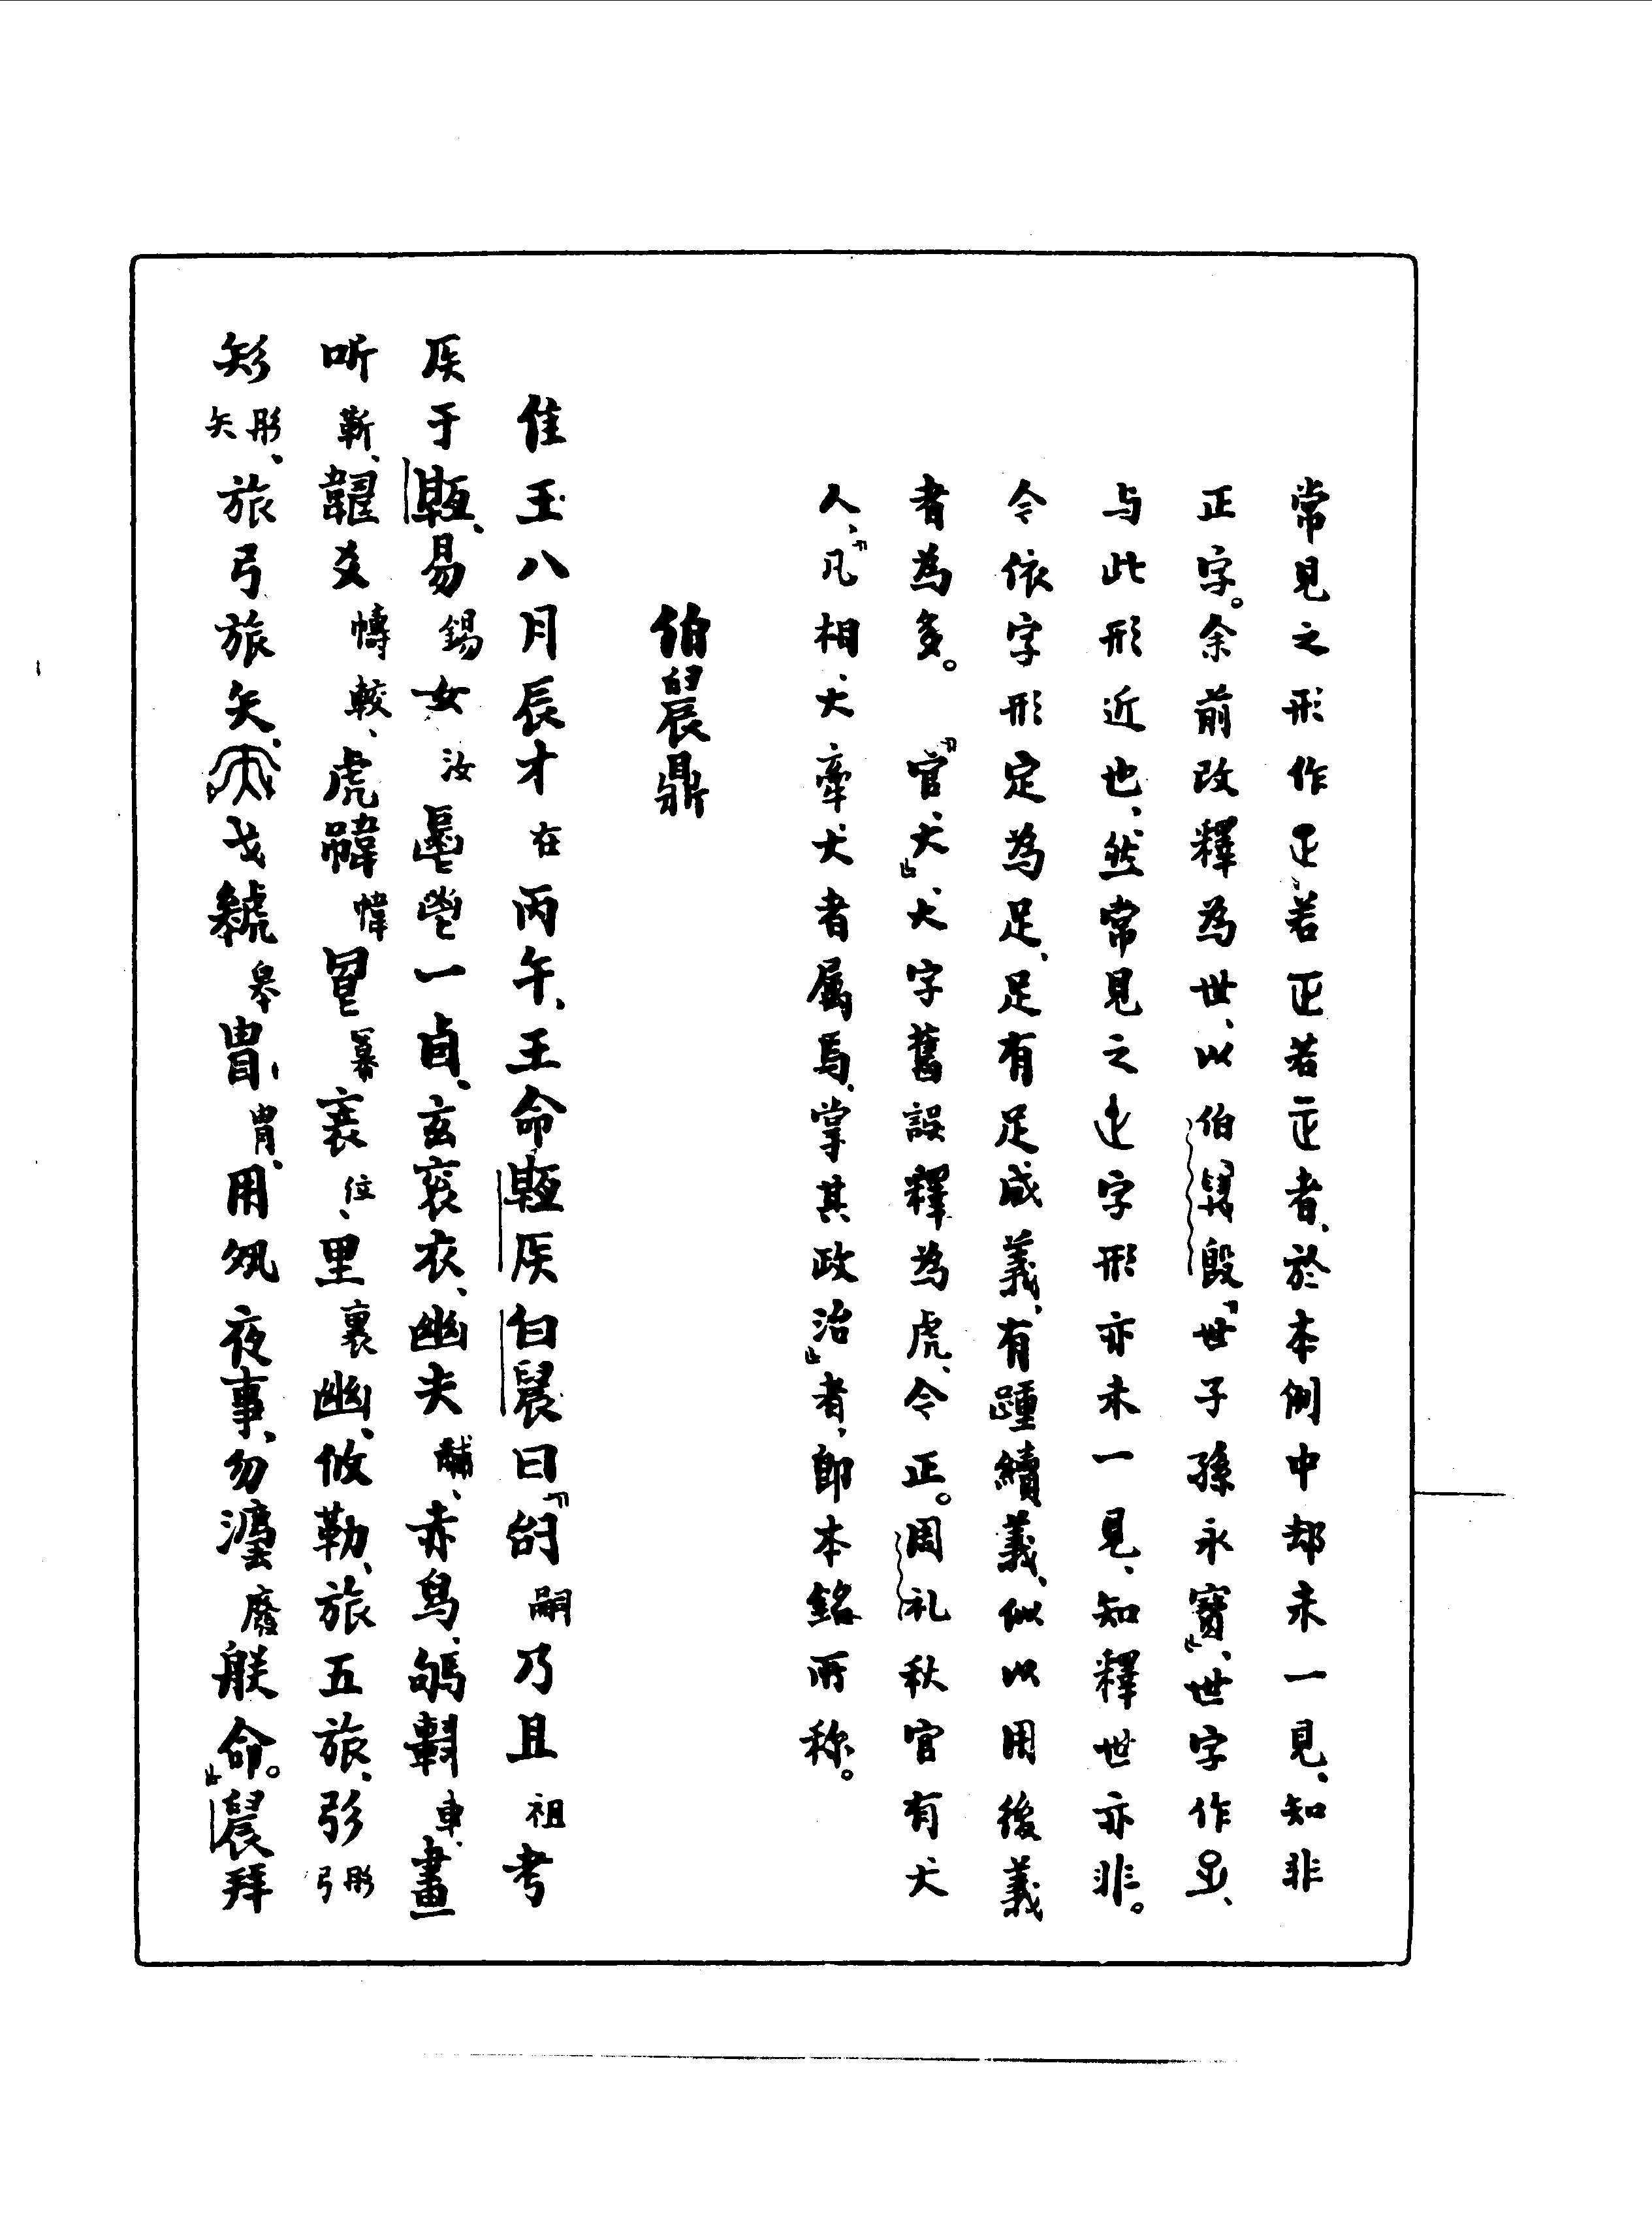 常見之形作𤴓若正若𤴓者、於本側中却未一見、知非
正字。余前改釋為世、以伯殷『世子孫永寶』、世字作、
与此形近也、然常見之止字形亦未一見、知釋世亦非。
今依字形定為足、足有足咸義、有踵續義、似以用後義
者為多。『官犬』、犬字舊誤釋為虎、今正。周礼秋官有犬
人、『凡相、犬牽犬者属焉、掌其政治』者、即本銘所称。
伯晨鼎
隹王八月辰才在丙午、王命𩏑医白晨曰『㠱嗣乃且祖考
医于𩏑、易錫女汝鬯一卣、玄袞衣、幽夫黼、赤舄、駒車、畫
听靳、爻幬較、虎幃幃冟冪衺位、里裏幽、攸勒、旅五旅、彤弓
彤矢、旅弓旅矢、戈皋胄、胄、用夙夜事、勿灋廢朕命。』晨拜